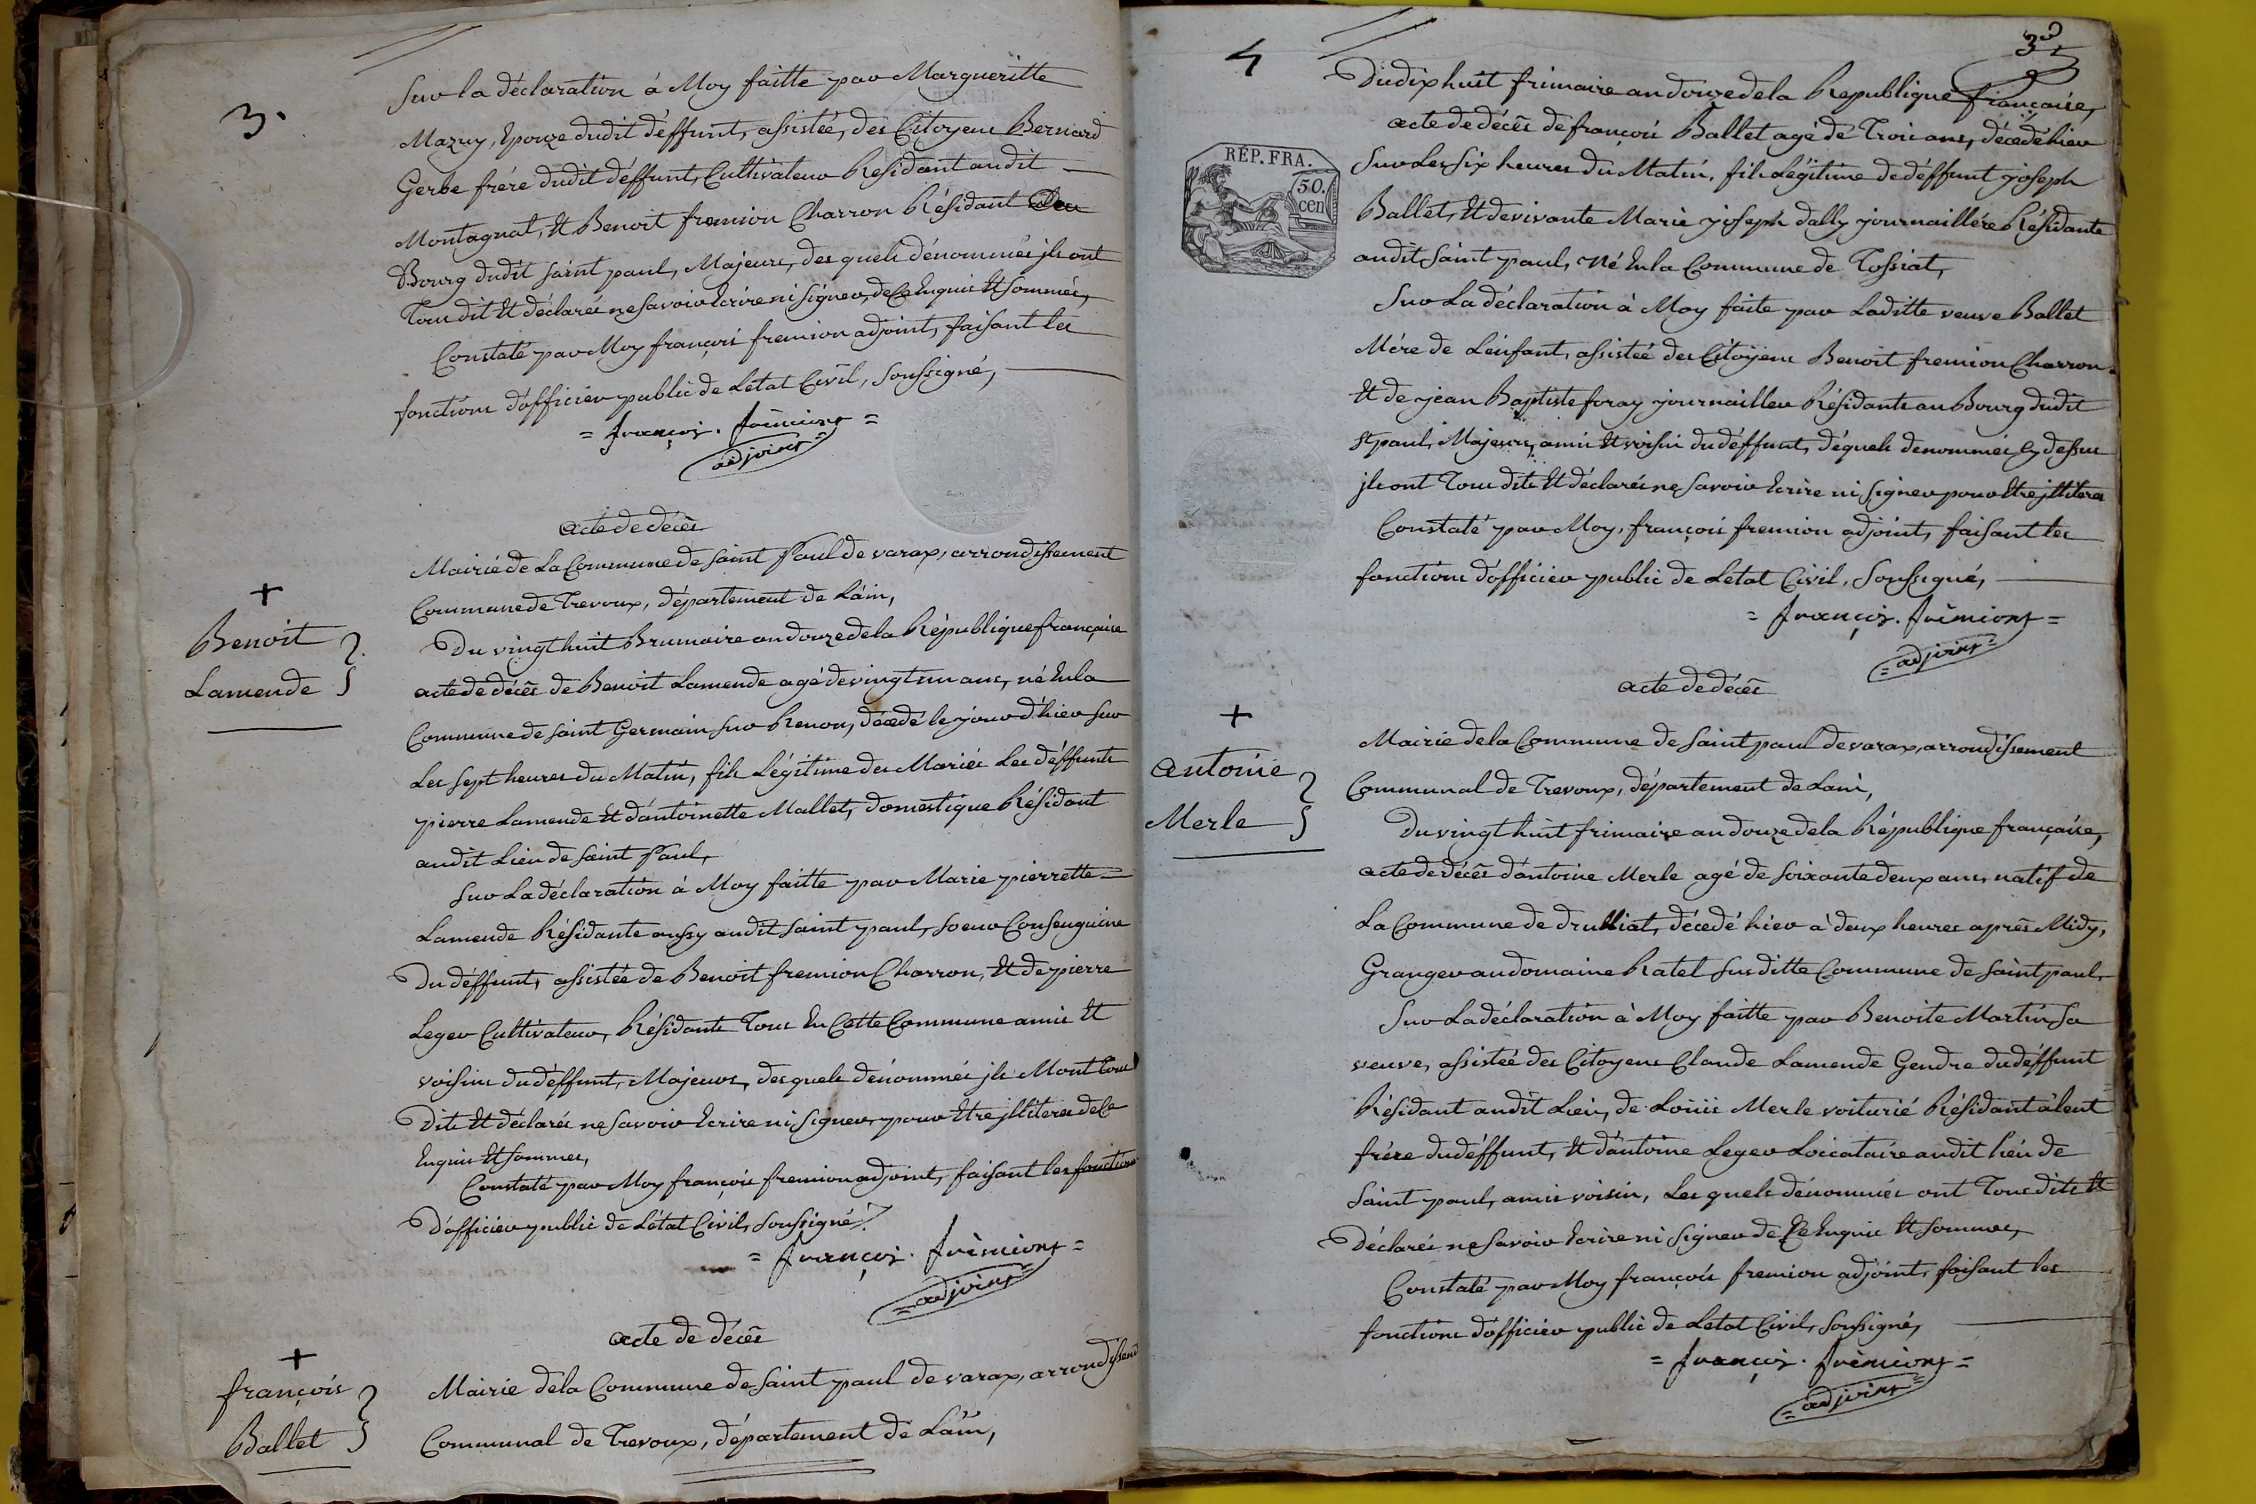 3.
Sur la déclaration à Moy faitte par Margueritte
Mazuy, Epouze dudit déffunt, assistée, des Citoyens Bernard
Gerbe frére dudit déffunt, Cultivateur Résidant audit
Montagnat, Et Benoit fremion Charron Résidant au
Bourg dudit saint paul, Majeurs, des quels dénommés jls ont
Tous dit Et déclarés ne savoir Ecrire ni signer, de Ce Enquis Et sommés,
Constaté par Moy françois fremion adjoint, faisant les
fonctions d'officier public de Letat Civil, soussigné,
= françois. frémiont =
adjoint
acte de décès
Mairie de La Commune de saint Paul de varax, arrondissement
Commune de Trevoux, département de L'ain,
+
Benoit
Lamende
Du vingt huit Brumaire an douze de la République française
acte de décès de Benoit Lamende agé de vingt un ans, né En la
Commune de saint Germain sur Renon, décédé le jour d'hier sur
Les sept heures du Matin, fils Légitime des Mariés Les déffunts
pierre Lamende Et d'antoinette Mallet, domestique Résidant
audit Lieu de saint Paul,
Sur La déclaration à Moy faitte par Marie pierrette
Lamende Résidante aussy audit saint paul, soeur Consenguine
Du déffunt, assistée de Benoit fremion Charron, Et de pierre
Leger Cultivateur, Résidants Tous En Cette Commune amis Et
voisins du déffunt, Majeurs, des quels dénommés jls M'ont tous
Dits Et déclarés ne savoir Ecrire ni signer, pour Etre jlliteres de Ce
Enquis Et sommes,
Constaté par Moy françois fremion adjoint, faisant les fonctions
D'officier public de L'état Civil, soussigné.
= françois. frémiont =
= adjoint =
acte de décès
+
françois
Ballet
Mairie de la Commune de saint paul de varax, arrondissemt
Communal de Trevoux, département de L'ain,
4
3
Du dix huit frimaire an douze de la Republique française,
acte de décès de françois Ballet agé de Trois ans, décédé hier
RÉP. FRA.
50.
cen
Sur Les six heures du Matin, fils Légitime de déffunt joseph
Ballet, Et de vivante Marie joseph dally journaillére Résidante
audit saint paul, Né En la Commune de Tossiat,
Sur La déclaration à Moy faite par Laditte veuve Ballet
Mére de L'enfant, assistée des Citoÿens Benoit fremion Charron
Et de jean Baptiste foray journaillier Résidants au Bourg dudit
st paul, Majeurs, amis Et voisin du déffunt, déquels denommés cy dessus
jls ont Tous dits Et déclarés ne savoir Ecrire ni signer pour Etre jlliteres
Constaté par Moy, françois fremion adjoint, faisant les
fonctions d'officier public de Letat Civil, soussigné,
= françois. frémiont =
= adjoint =
acte de décès
+
antoine
Merle
Mairie de la Commune de saint paul de varax, arrondissement
Communal de Trevoux, département de L'ain,
Du vingt huit frimaire an douze de la République française,
acte de décès d'antoine Merle agé de soixante deux ans, natif de
La Commune de druilliat, décedé hier à deux heures après Midy,
Granger au domaine Ratel susditte Commune de saint paul,
Sur La déclaration à Moy faitte par Benoite Martin sa
veuve, assistée des Citoyens Claude Lamende Gendre du déffunt
Résidant audit Lieu, de Loüis Merle voiturié Résidant à lent
frére du déffunt, Et d'antoine Leger Loccataire audit liéu de
Saint paul, amis voisin, Les quels dénommés ont Tous dits Et
Déclarés ne savoir Ecrire ni signer de Ce Enquis Et sommes,
Constaté par Moy françois fremion adjoint, faisant les
fonctions d'officier public de Letat Civil, soussigné,
= françois. frémiont =
= adjoint =